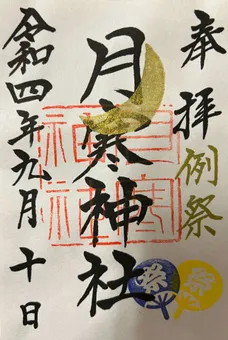 奉拝
例祭
月寒神社
令和四年九月十日
祭
祭